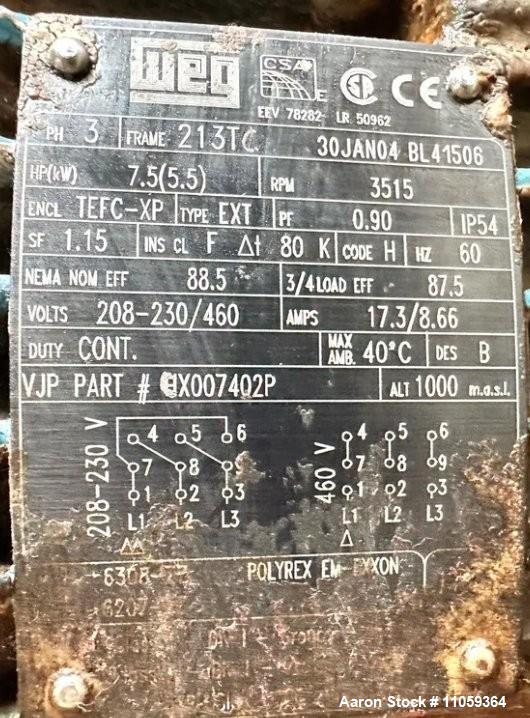 WEG CSA
EEV 78282 LR 50962
PH 3 FRAME 213TC 30JAN04 BL41506
HP(kW) 7.5(5.5) RPM 3515
ENCL TEFC-XP TYPE EXT PF 0.90 IP54
SF 1.15 INS CL F Δt 80 K CODE H HZ 60
NEMA NOM EFF 88.5 3/4 LOAD EFF 87.5
VOLTS 208-230/460 AMPS 17.3/8.66
DUTY CONT. MAX AMB. 40°C DES B
VJP PART # X007402P ALT 1000 m.a.s.l.
208-230 V 4 5 6 460 V 4 5 6
7 8 9 7 8 9
1 2 3 1 2 3
L1 L2 L3 L1 L2 L3
ΔΔ Δ
6308 POLYREX EM-EXXON
6207
Aaron Stock # 11059364